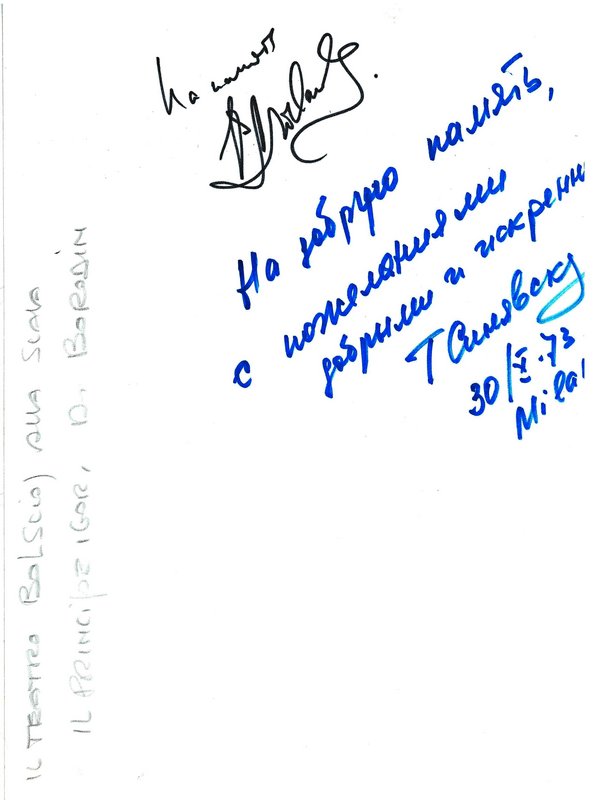 На память
На добрую память,
с пожеланиями
добрыми и искренн
Т Синявск
30/X.73
Mila
IL TEATRO BOLSCIOJ ALLA SCALA
IL PRINCIPE IGOR, DI BORODIN